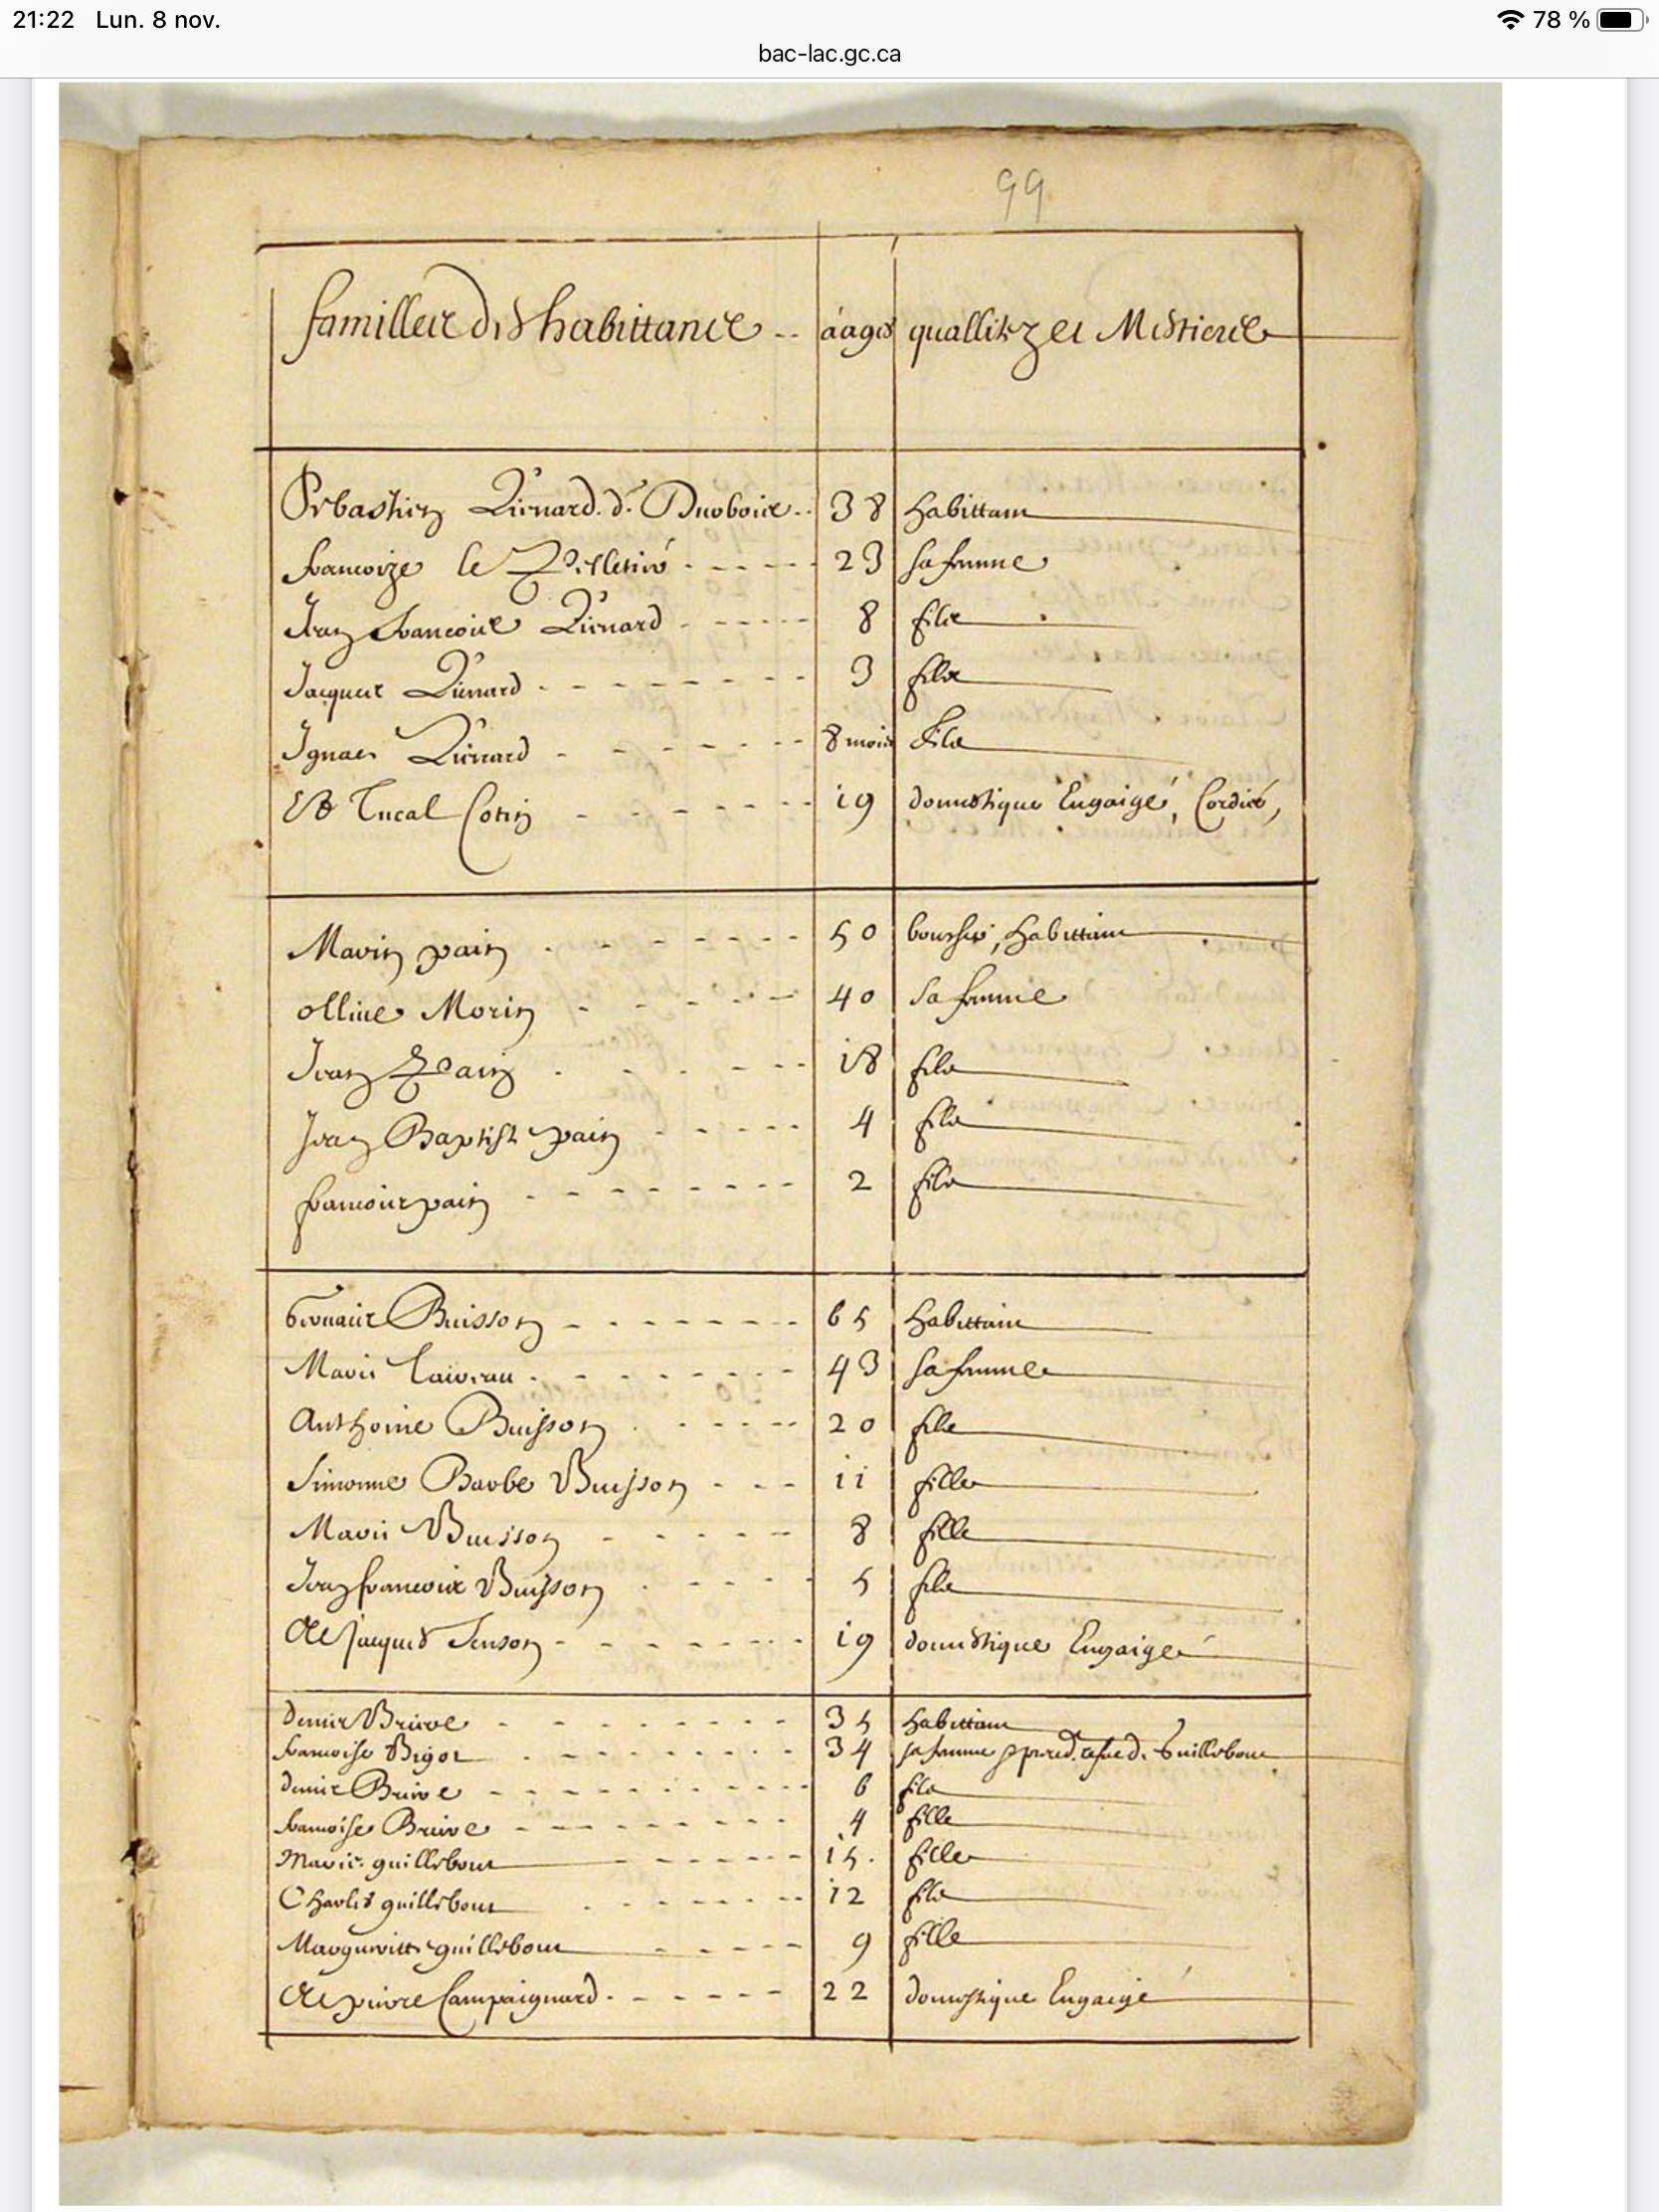 21:22 Lun. 8 nov. 78 %
bac-lac.gc.ca
99
familles des habittans aages quallitez et Mestiers
Sebastien Lienard dt Duvbois 38 habittant
francoize le Pelletier 23 sa femme
Jean francois Lienard 8 fils
Jacques Lienard 3 fils
Ignace Lienard 8 mois fils
Et Lucas Cotin 19 domestique Engaigé, Cordier,
Marin pain 50 boucher, habittant
ollive Morin 40 sa femme
Jean Pain 18 fils
Jean Baptiste pain 4 fils
francois pain 2 fils
Gervais Buisson 65 habittant
Marie 43 sa femme
Anthoine Buisson 20 fils
Simonne Barbe Buisson 11 fille
Marie Buisson 8 fille
Jean francois Buisson 5 fils
Et Jacques Senson 19 domestique Engaigé
Denis Briere 35 habittant
francoise Bigot 34 sa femme Guillebour
Denis Briere 6 fils
francoise Briere 4 fille
Marie guillebour 15 fille
Charles guillebour 12 fils
Margueritte guillebour 9 fille
Et pierre Campaignard 22 domestique Engaigé